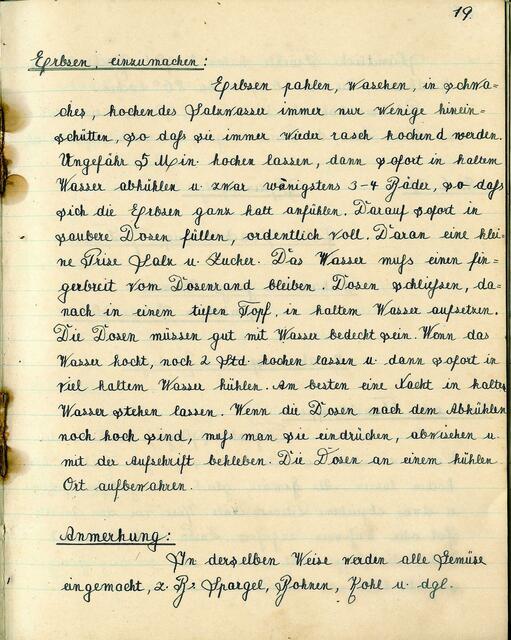 19.
Erbsen, einzumachen:
Erbsen pahlen, waschen, in schwa-
ches, kochendes Salzwasser immer nur wenige hinein-
schütten, so daß sie immer wieder rasch kochend werden.
Ungefähr 5 Min. kochen lassen, dann sofort in kaltem
Wasser abkühlen u. zwar wenigstens 3-4 Bäder, so daß
sich die Erbsen ganz kalt anfühlen. Darauf sofort in
saubere Dosen füllen, ordentlich voll. Daran eine klei-
ne Prise Salz u. Zucker. Das Wasser muß einen fin-
gerbreit vom Dosenrand bleiben. Dosen schließen, da-
nach in einem tiefen Topf, in kaltem Wasser aufsetzen.
Die Dosen müssen gut mit Wasser bedeckt sein. Wenn das
Wasser kocht, noch 2 Std. kochen lassen u. dann sofort in
viel kaltem Wasser kühlen. Am besten eine Nacht in kaltem
Wasser stehen lassen. Wenn die Dosen nach dem Abkühlen
noch hoch sind, muß man sie eindrücken, abwischen u.
mit der Aufschrift bekleben. Die Dosen an einem kühlen
Ort aufbewahren.
Anmerkung:
In derselben Weise werden alle Gemüse
eingemacht, z. B. Spargel, Bohnen, Kohl u. dgl.